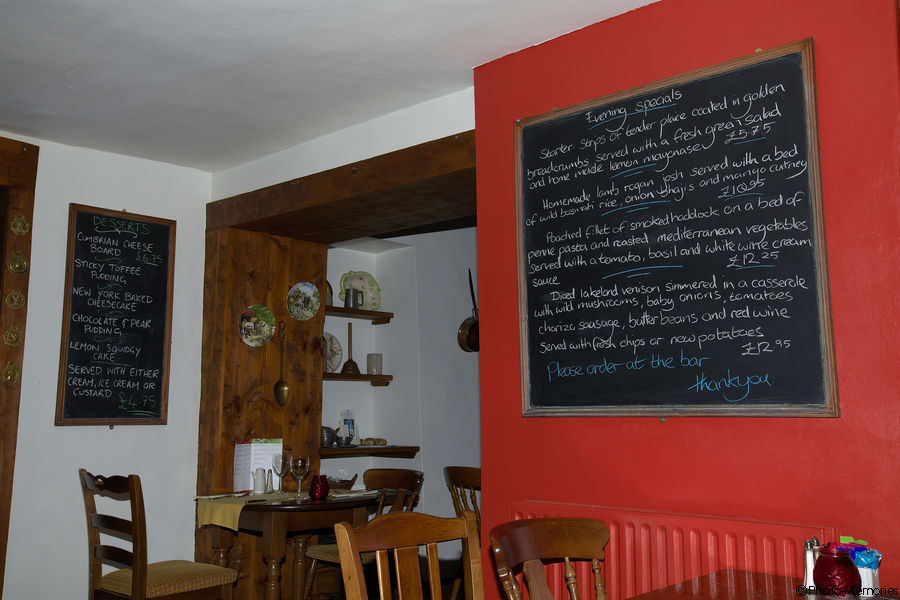 DESSERTS
CUMBRIAN CHEESE
BOARD £6.75
STICKY TOFFEE
PUDDING
NEW YORK BAKED
CHEESECAKE
CHOCOLATE & PEAR
PUDDING
LEMON SQUIDGY
CAKE
SERVED WITH EITHER
CREAM, ICE CREAM OR
CUSTARD £4.75
Evening specials
Starter: Strips of tender place coated in golden
breadcrumbs served with a fresh green salad
and home made lemon mayonaise £5.75
Homemade lamb rogan josh served with a bed
of wild basmati rice, onion bhajis and mango cutney
£10.95
Poached fillet of smoked haddock on a bed of
penne pasta and roasted mediterranean vegetables
served with a tomato, basil and white wine cream
sauce £12.25
Diced lakeland venison simmered in a casserole
with wild mushrooms, baby onions, tomatoes
chorizo sausage, butter beans and red wine
served with fresh chips or new potatoes
£12.95
Please order at the bar
thankyou
©Photo Memories